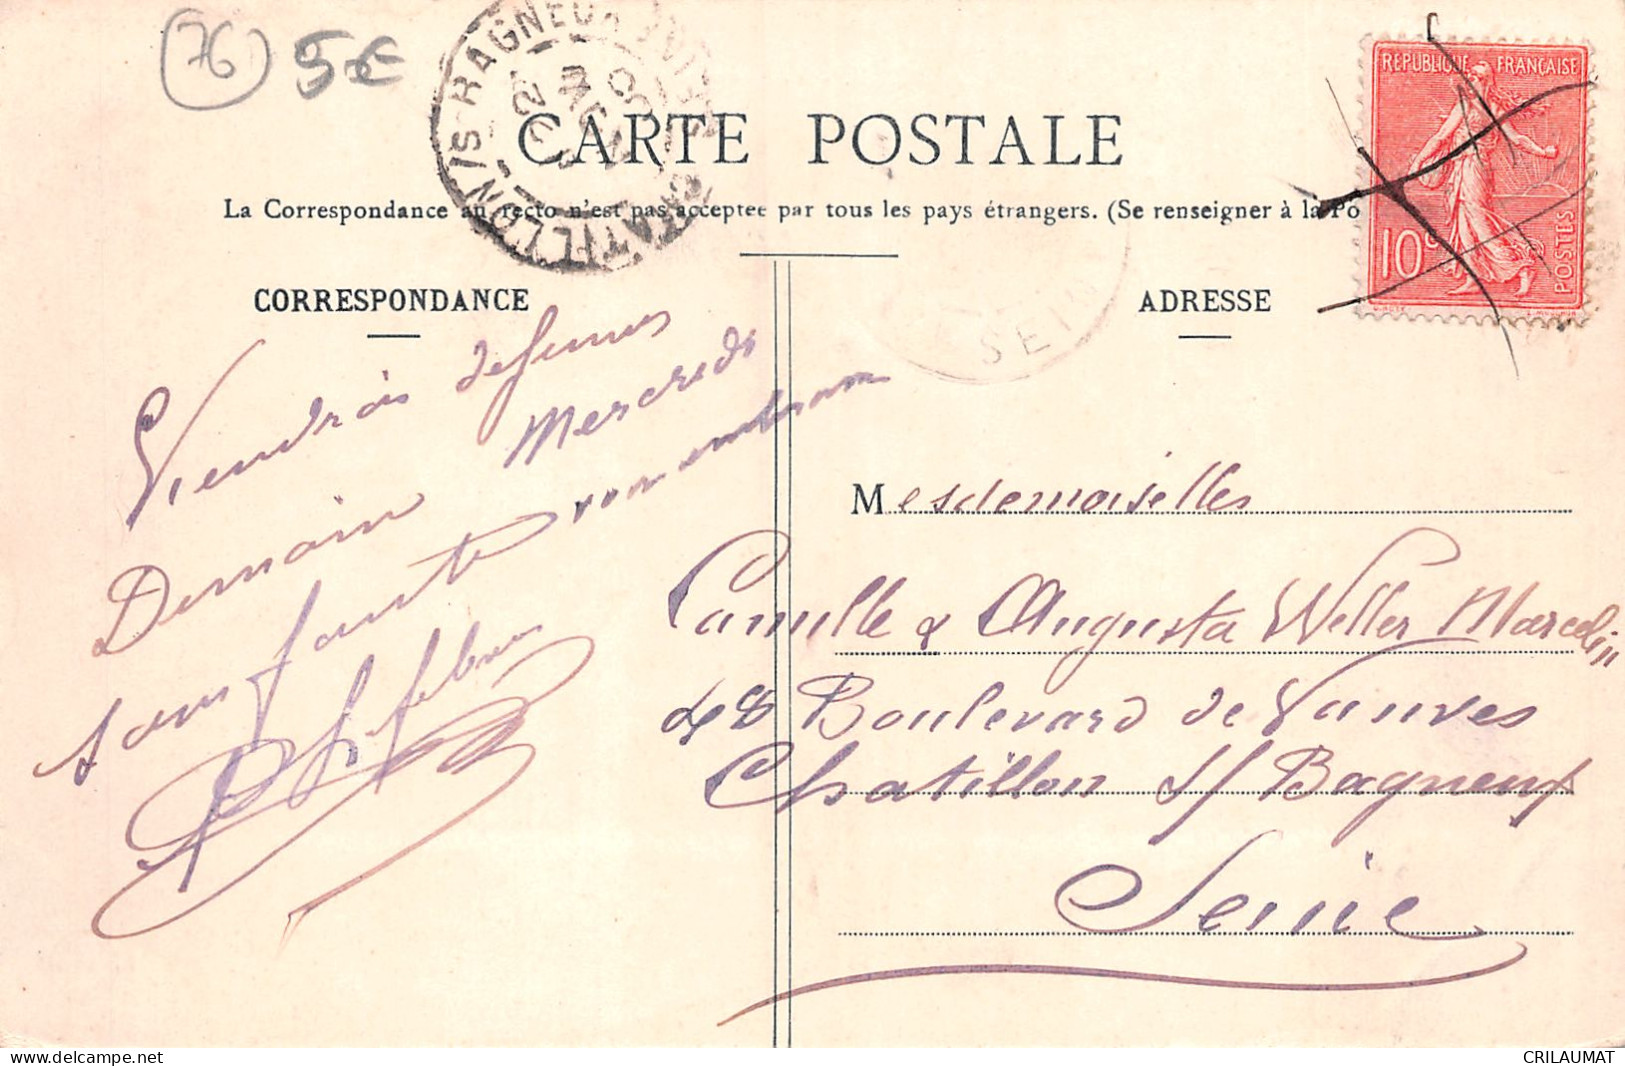 76 5€
CHATILLON S/S BAGNEUX
CARTE POSTALE
La Correspondance au recto n'est pas acceptee par tous les pays étrangers. (Se renseigner à la Po
REPUBLIQUE FRANÇAISE
10 c
POSTES
CORRESPONDANCE
ADRESSE
SEINE
Viendrais
Mercredi
Demain
sans faute
Lefebvre
Mesdemoiselles
Camille & Augusta Weller Marcelin
48 Boulevard de Vanves
Chatillon s/ Bagneux
Seine
delcampe.net
CRILAUMAT